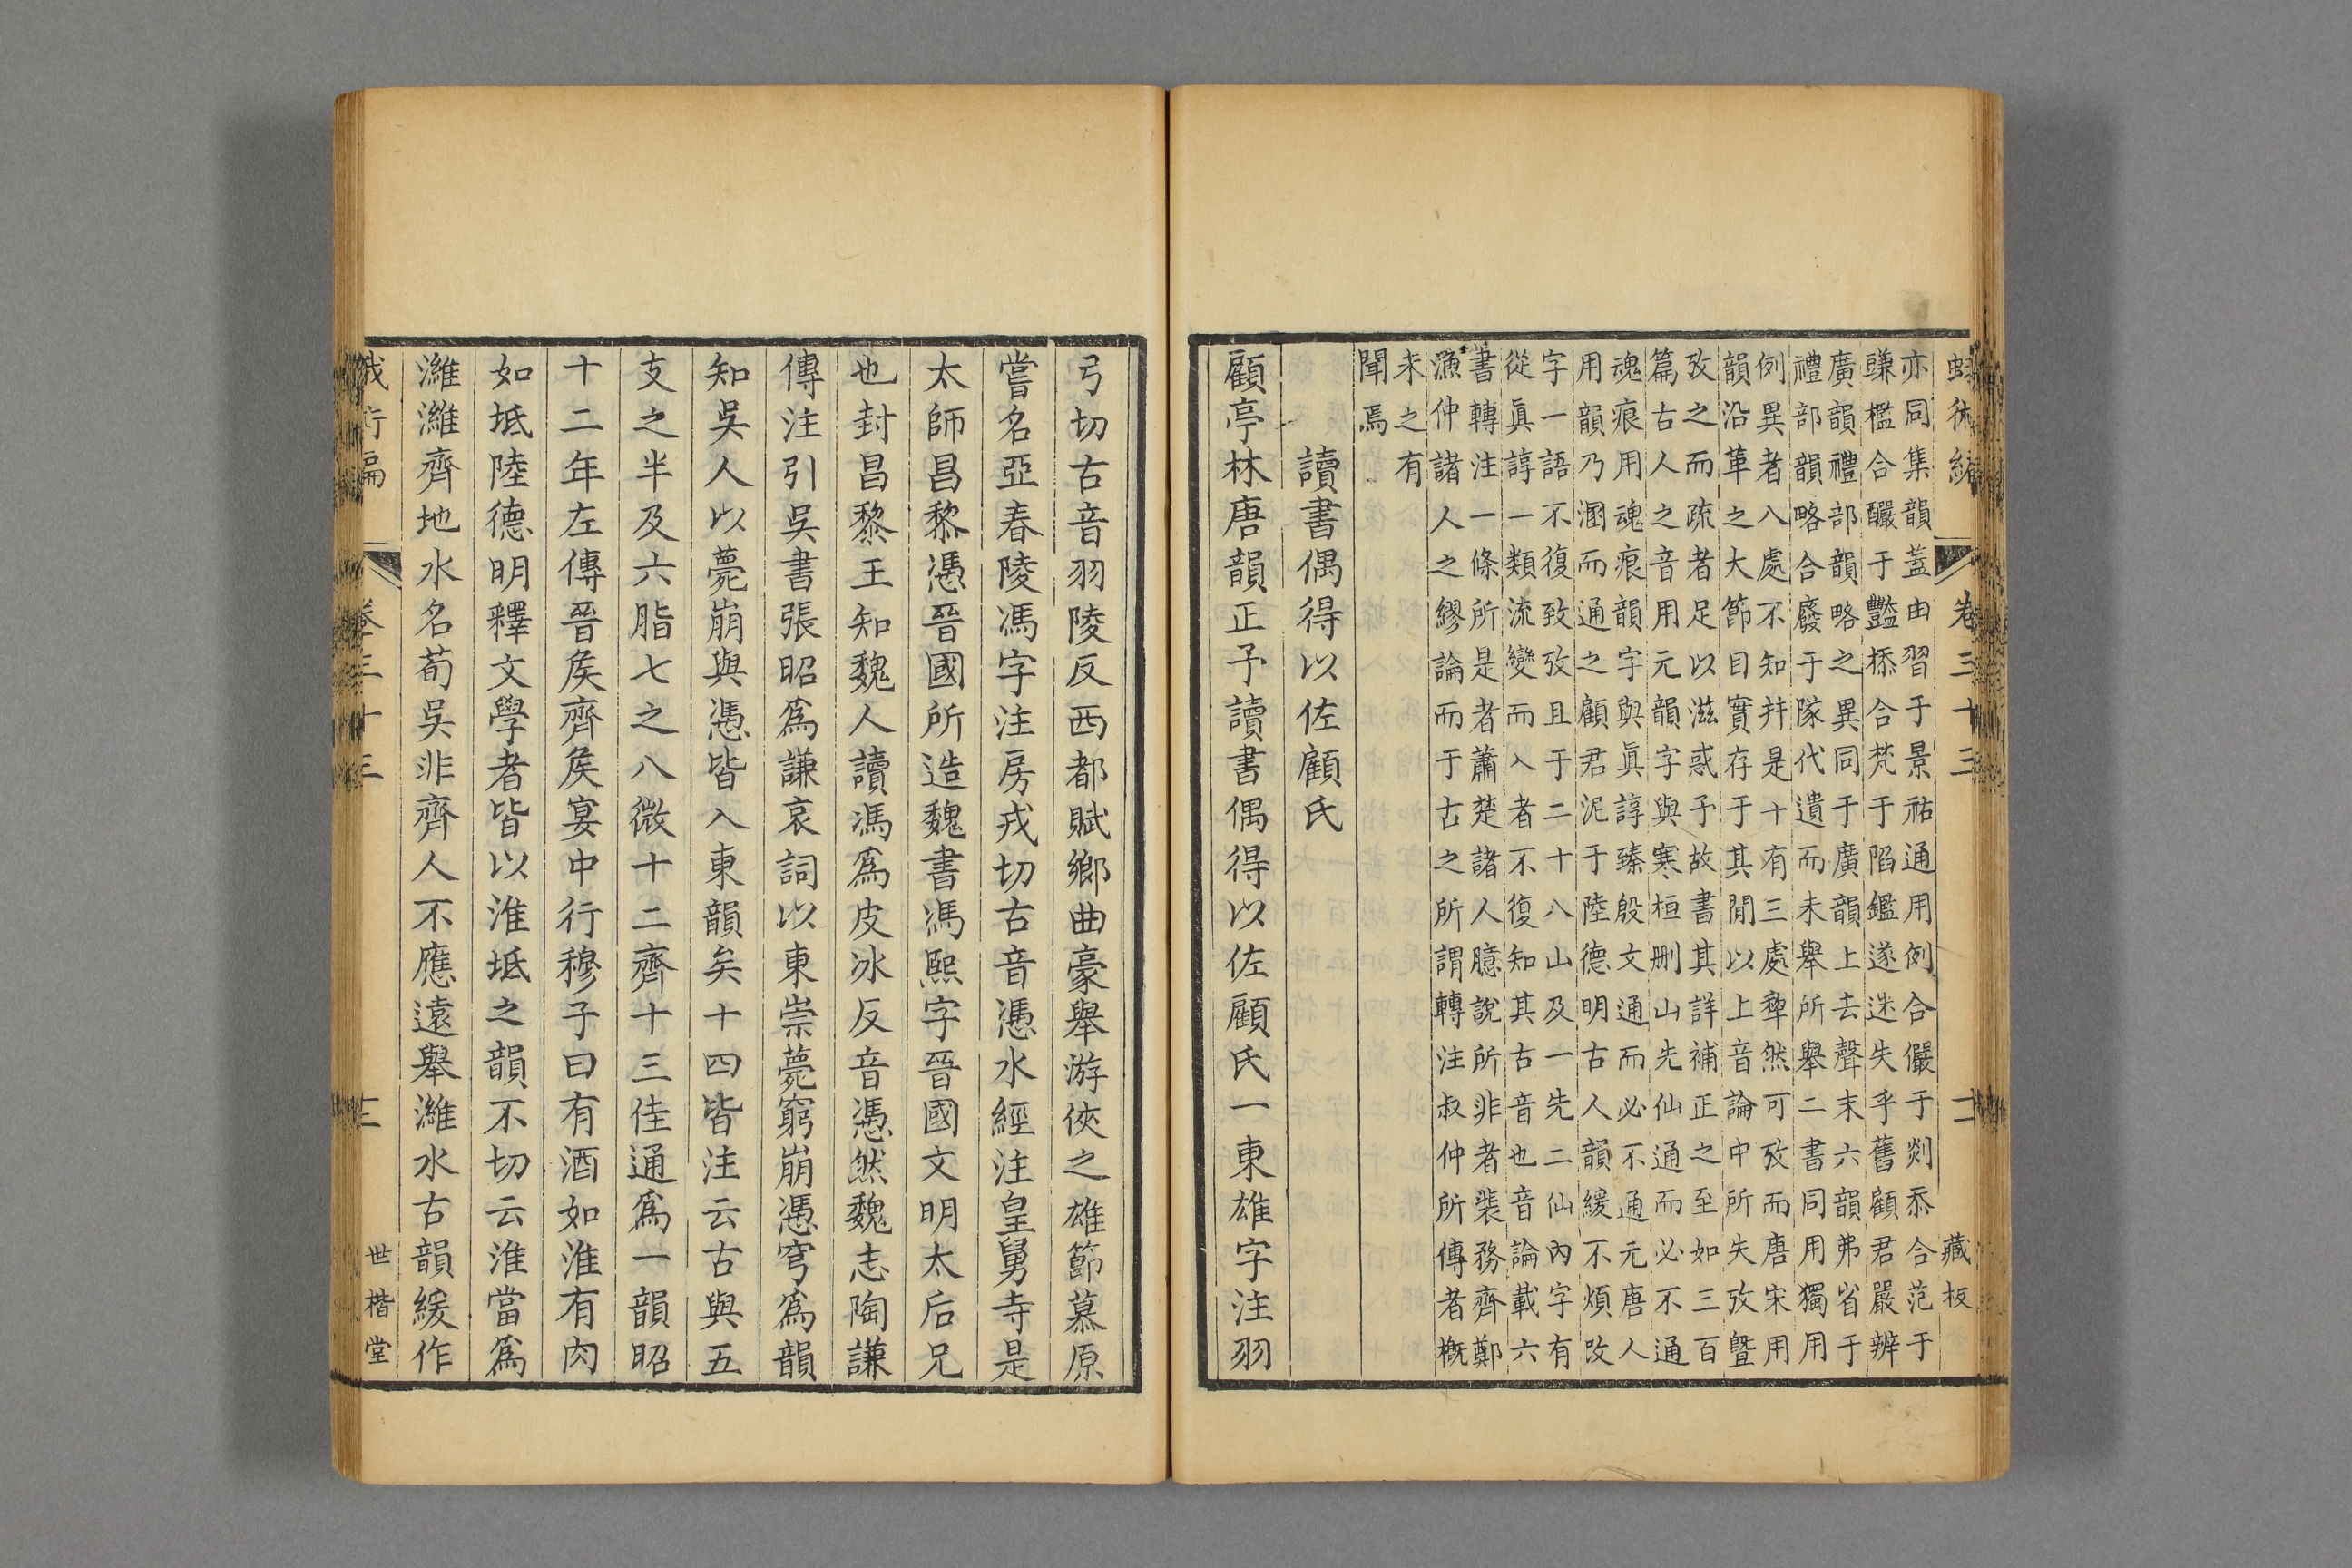 蛾術編 卷三十三 二 藏板
亦同集韻蓋由習于景祐通用例合儼于剡忝合范于
豏檻合釅于豔㮇合梵于陷鑑遂迷失乎舊顧君嚴辨
廣韻禮部韻略之異同于廣韻上去聲末六韻弗省于
禮部韻略合廢于隊代遺而未舉所舉二書同用獨用
例異者八處不知并是十有三處犂然可攷而唐宋用
韻沿革之大節目實存于其閒以上音論中所失攷曁
攷之而疏者足以滋惑予故書其詳補正之至如三百
篇古人之音用元韻字與寒桓删山先仙通而必不通
魂痕用魂痕韻字與眞諄臻殷文通而必不通元唐人
用韻乃溷而通之顧君泥于陸德明古人韻緩不煩改
字一語不復致攷且于二十八山及一先二仙內字有
從眞諄一類流變而入者不復知其古音也音論載六
書轉注一條所是者蕭楚諸人臆說所非者裴務齊鄭
漁仲諸人之繆論而于古之所謂轉注叔仲所傳者槪
未之有
聞焉
讀書偶得以佐顧氏
顧亭林唐韻正予讀書偶得以佐顧氏一東雄字注羽
弓切古音羽陵反西都賦鄉曲豪舉游俠之雄節慕原
嘗名亞春陵馮字注房戎切古音憑水經注皇舅寺是
太師昌黎憑晉國所造魏書馮熙字晉國文明太后兄
也封昌黎王知魏人讀馮爲皮冰反音憑然魏志陶謙
傳注引吳書張昭爲謙哀詞以東崇薨窮崩憑穹爲韻
知吳人以薨崩與憑皆入東韻矣十四皆注云古與五
支之半及六脂七之八微十二齊十三佳通爲一韻昭
十二年左傳晉侯齊侯宴中行穆子曰有酒如淮有肉
如坻陸德明釋文學者皆以淮坻之韻不切云淮當爲
濰濰齊地水名荀吳非齊人不應遠舉濰水古韻緩作
蛾術編 卷三十三 三 世楷堂